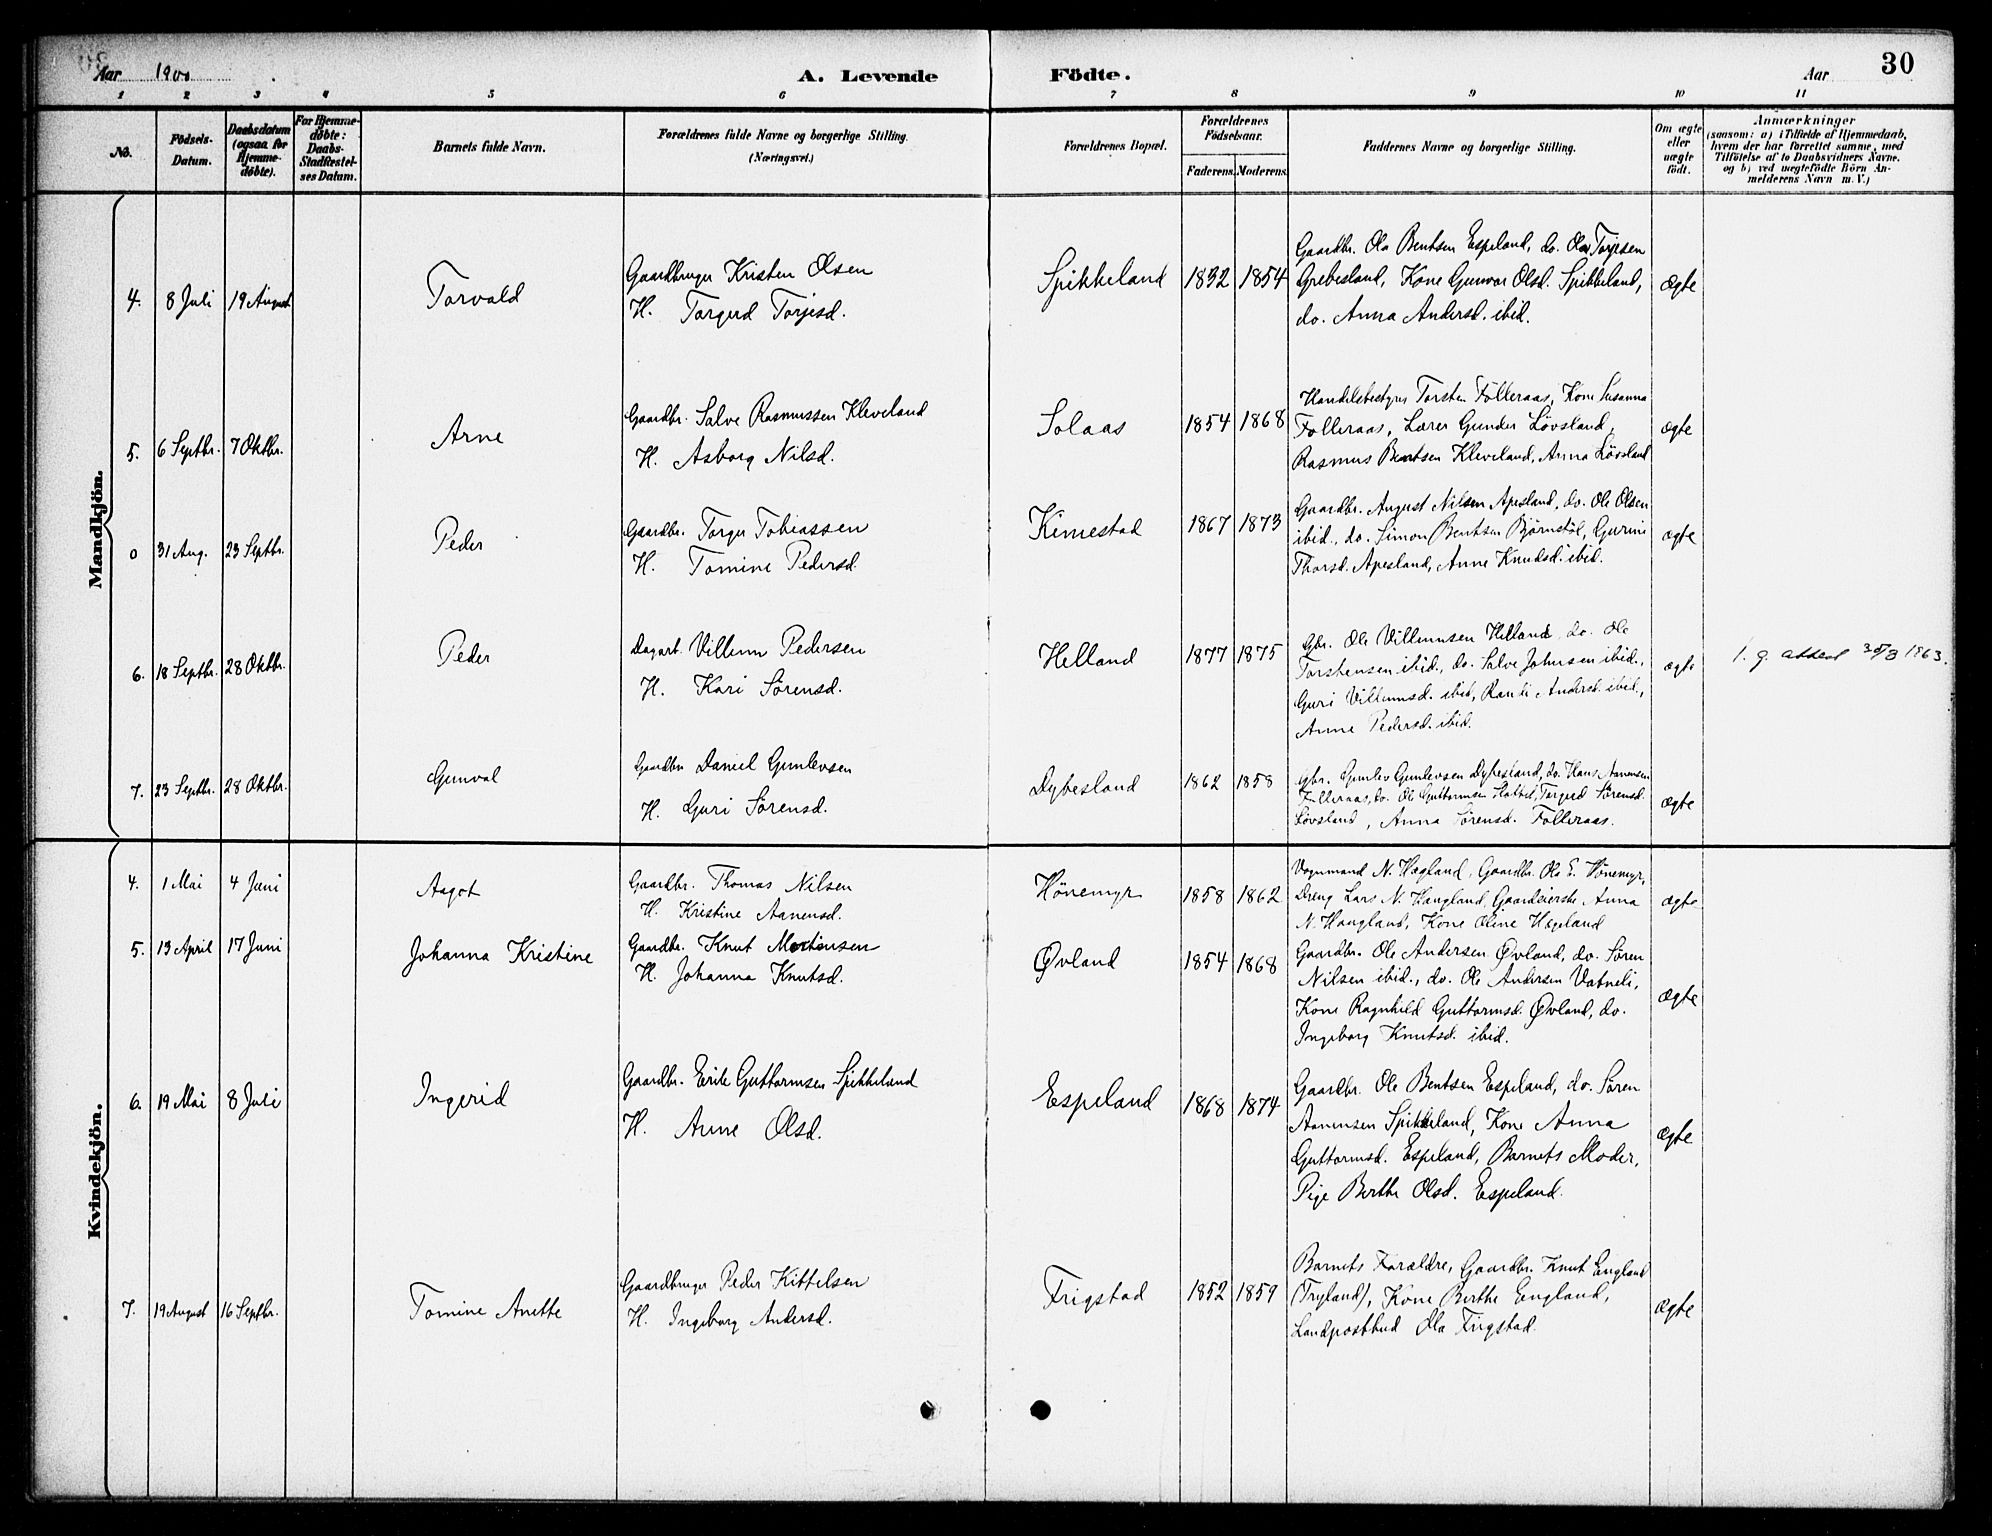 Aar 1900 A. Levende Födte. Aar 30
1 2 3 4 5 6 7 8 9 10 11
No. Födsels-Datum. Daabsdatum (ogsaa for Hjemme-døbte). For Hjemme-døbte: Daabs-Stadfæstel-ses Datum. Barnets fulde Navn. Forældrenes fulde Navne og borgerlige Stilling. (Næringsvei.) Forældrenes Bopæl. Forældrenes Födselsaar. Faderens. Moderens. Faddernes Navne og borgerlige Stilling. Om ægte eller uægte födt. Anmærkninger (saasom: a) i Tilfælde af Hjemmedaab, hvem der har forrettet samme, med Tilföielse af to Daabsvidners Navne. og b) ved uægtefödte Börn An-melderens Navn m. V.)
Mandkjön.
4. 8 Juli 19 August Torvald Gaardbruger Kristen Olsen Spikkeland 1832 1854 Gaardbr. Ola Bentsen Espeland, do. Olav Torjesen ægte
H. Torgerd Torjesd. Grebesland, Kone Gunvor Olsd. Spikkeland,
do. Anna Andersd. ibid.
5. 6 Septbr. 7 Oktbr. Arne Gaardbr. Salve Rasmussen Kleveland Solaas 1854 1868 Handelsbestyrer Torsten Folleraas, Kone Susanna ægte
H. Asborg Nilsd. Folleraas, Lærer Gunder Lövsland,
Rasmus Bentsen Kleveland, Anna Lövsland
0 31 Aug. 23 Septbr. Peder Gaardbr. Torger Tobiassen Kimestad 1867 1873 Gaardbr. August Nilsen Apesland, do. Ole Olsen ægte
H. Tomine Pedersd. ibid., do. Simon Bentsen Bjørnstöl, Gurine
Thorsd. Apesland, Anne Knudsd. ibid.
6. 18 Septbr. 28 Oktbr. Peder Dagarb. Villum Pedersen Helland 1877 1875 Gbr. Ole Villumsen Helland, do. Ole ægte 1. g. attest 30/3 1963.
H. Kari Sörensd. Torstensen ibid., do. Salve Johnsen ibid.,
Guri Villumsd. ibid, Randi Andersd. ibid.,
Anne Pedersd. ibid.
7. 23 Septbr. 28 Oktbr. Gunval Gaardbr. Daniel Gunlevsen Dybesland 1862 1858 Gbr. Gunlev Gunlevsen Dybesland, do. Hans Aanensen ægte
H. Guri Sörensd. Folleraas, do. Ole Guttormsen Hottel, Torgerd Sörensd.
Lövsland, Anna Sörensd. Folleraas.
Kvindekjön.
4. 1 Mai 4 Juni Aagot Gaardbr. Thomas Nilsen Hönemyr 1858 1862 Vognmand N. Hægland, Gaardbr. Ole E. Hönemyr, ægte
H. Kristine Aanensd. Dreng Lars N. Haugland, Gaardeierske Anna
N. Haugland, Kone Oline Hægeland
5. 13 April 17 Juni Johanna Kristine Gaardbr. Knut Mortensen Øvland 1854 1868 Gaardbr. Ole Andersen Øvland, do. Sören ægte
H. Johanna Knutsd. Nilsen ibid., do. Ole Andersen Vatneli,
Kone Ragnhild Guttormsd. Øvland, do.
Ingeborg Knutsd. ibid.
6. 19 Mai 8 Juli Ingerid Gaardbr. Erik Guttormsen Spikkeland Espeland 1868 1874 Gaardbr. Ole Bentsen Espeland, do. Sören ægte
H. Anne Olsd. Aanensen Spikkeland, Kone Anna
Guttormsd. Espeland, Barnets Moder,
Pige Berthe Olsd. Espeland.
7. 19 August 16 Septbr. Tomine Anette Gaardbruger Peder Kittelsen Frigstad 1852 1859 Barnets Forældre, Gaardbr. Knut England ægte
H. Ingeborg Andersd. (Tryland), Kone Berthe England,
Landpostbud Ola Frigstad.